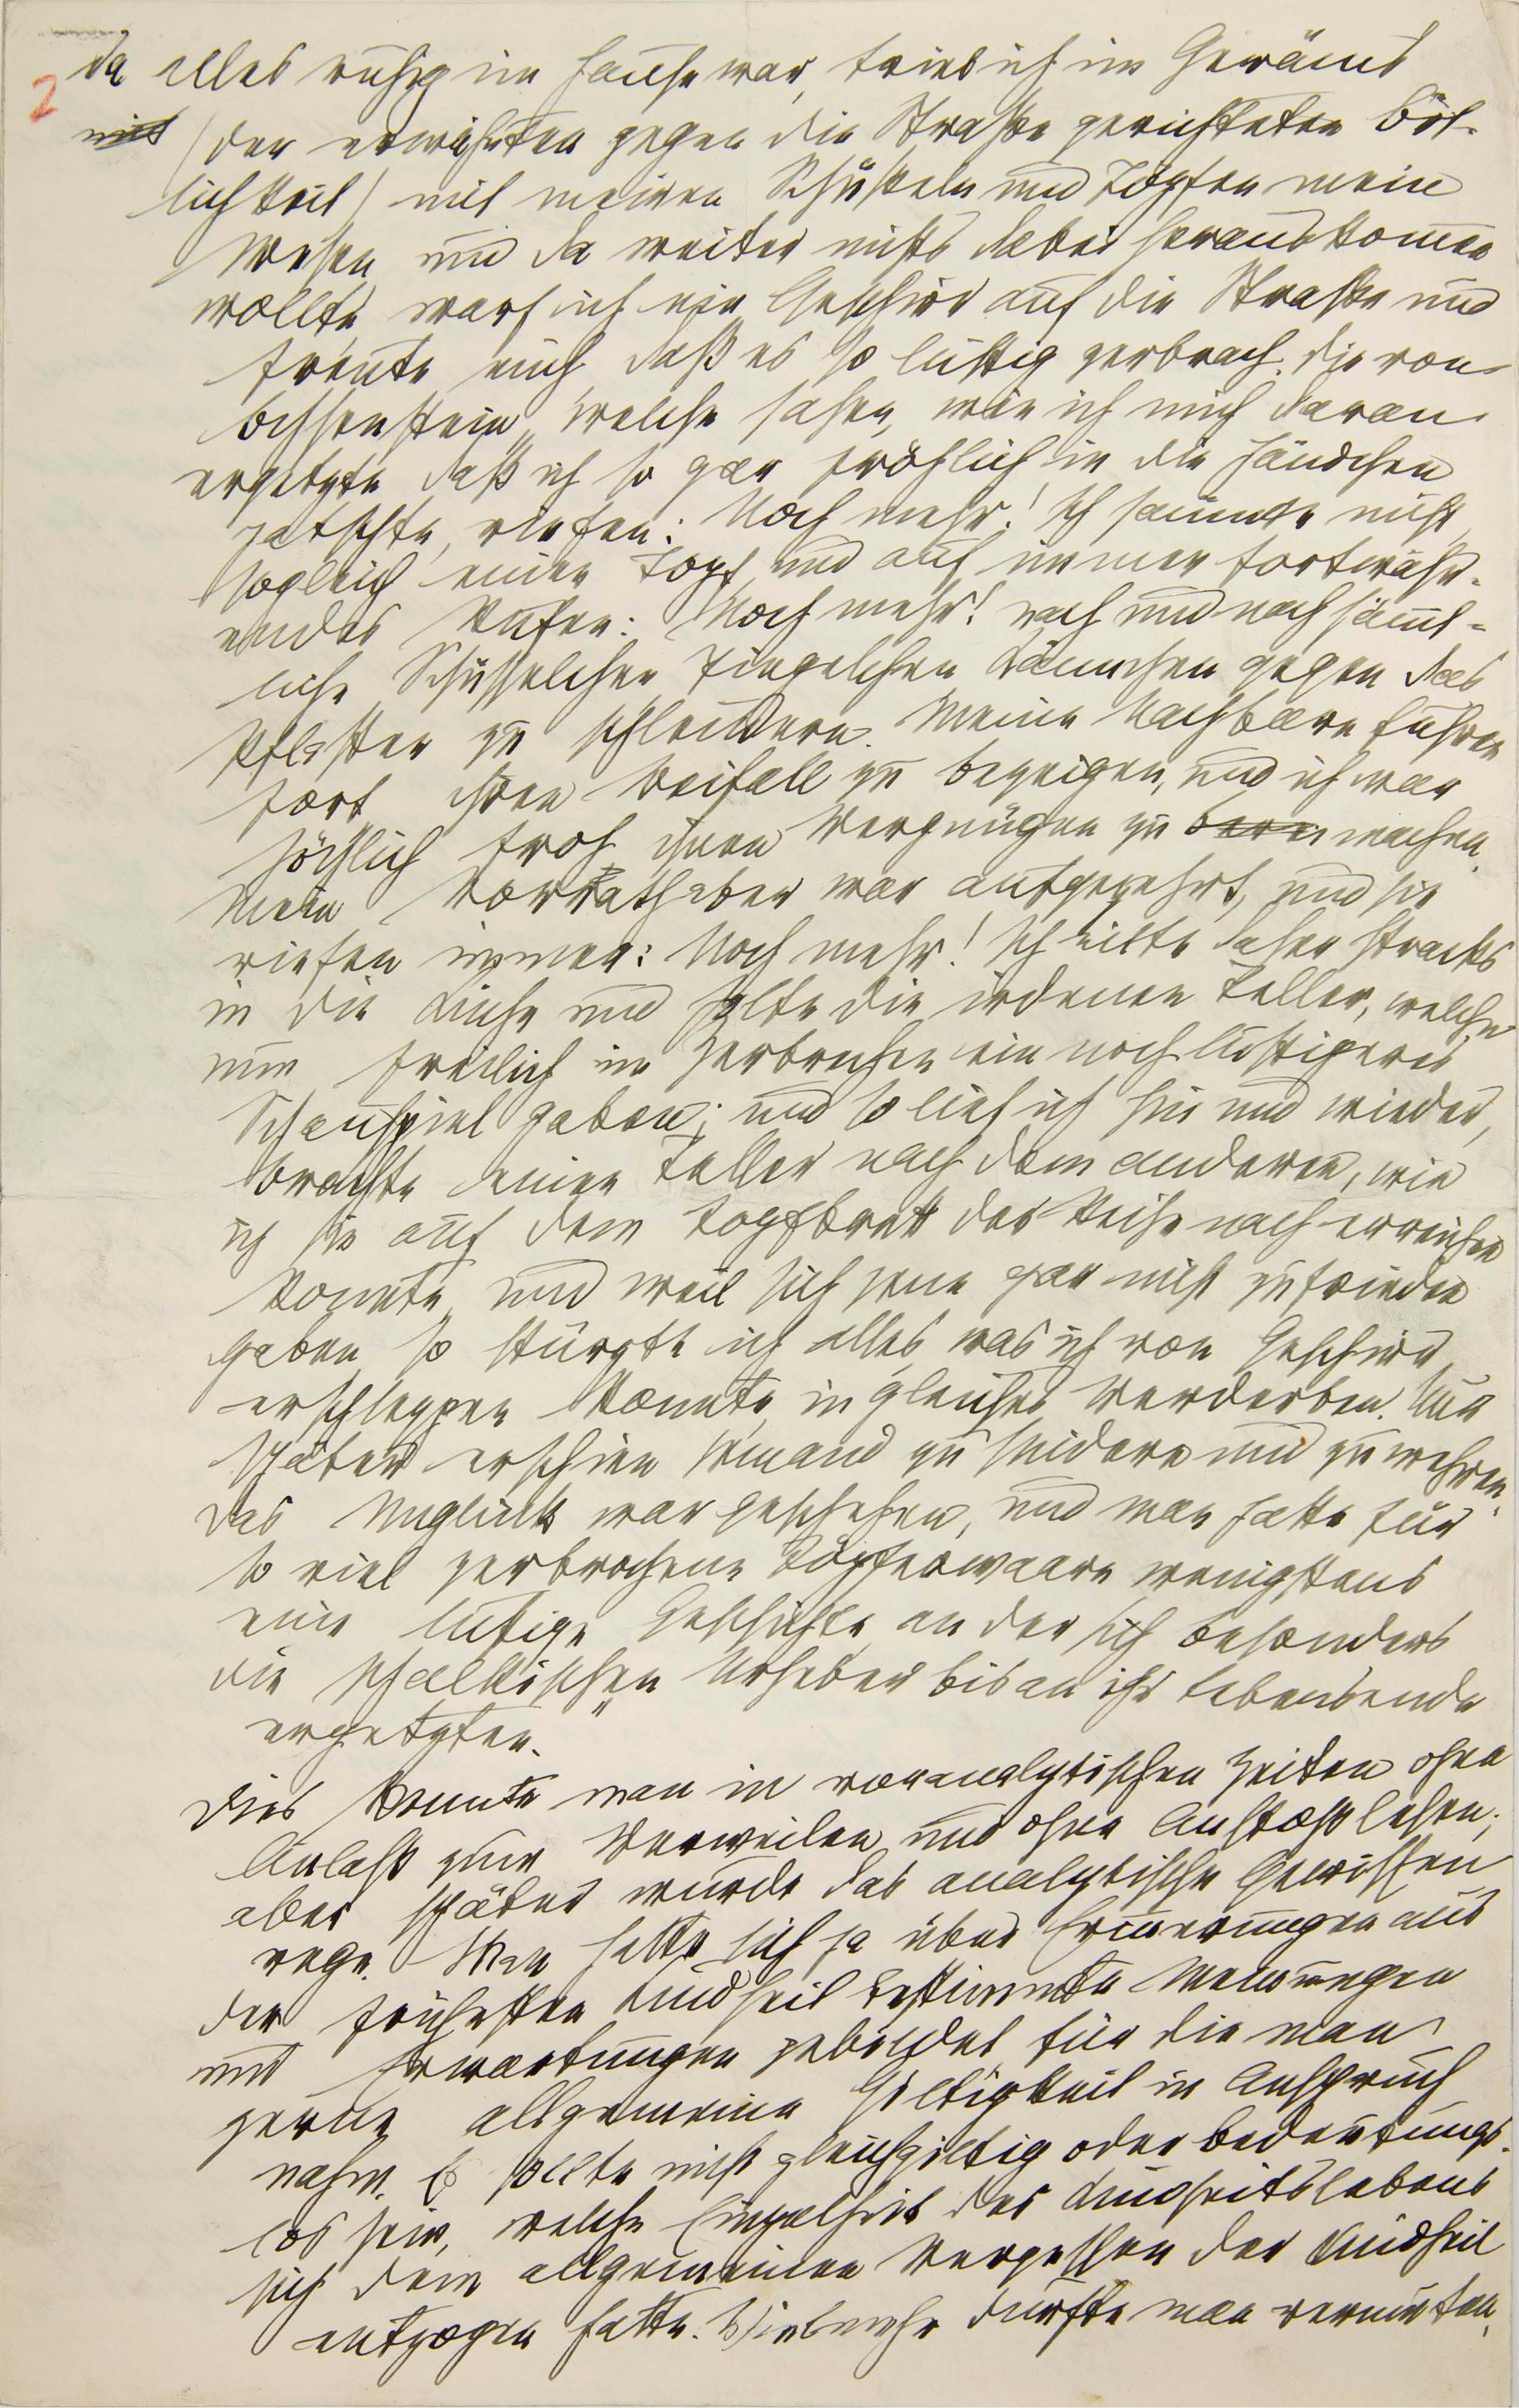 2
da alles ruhig im Hause war, trieb ich im Geräms
mit (der erwähnten gegen die Straße gerichteten Ört-
lichkeit) mit meinen Schüsseln und Töpfen mein
Wesen und da weiter nichts dabei herauskommen
wollte, warf ich ein Geschirr auf die Straße und
freute mich daß es so lustig zerbrach. Die von
Ochsenstein, welche sahen, wie ich mich daran
ergetzte daß ich so gar fröhlich in die Händchen
patschte, riefen: Noch mehr! Ich säumte nicht
sogleich einen Topf und auf immer fortwähr-
endes Rufen: Noch mehr! nach und nach sämt-
liche Schüsselchen Tiegelchen Kännchen gegen das
Pflaster zu schleudern. Meine Nachbarn fuhren
fort ihren Beifall zu bezeigen, und ich war
höchlich froh ihnen Vergnügen zu machen.
Mein Vorrath aber war aufgezehrt, und sie
riefen immer: Noch mehr! Ich eilte daher stracks
in die Küche und holte die irdenen Teller, welche
nun freilich im Zerbrechen ein noch lustigeres
Schauspiel gaben; und so lief ich hin und wieder,
brachte einen Teller nach dem anderen, wie
ich sie auf dem Topfbrett der Reihe nach erreichen
konnte und weil sich jene gar nicht zufrieden
gaben so stürzte ich alles was ich von Geschirr
erschleppen konnte in gleiches Verderben. Nur
später erschien jemand zu hindern und zu wehren.
Das Unglück war geschehen, und man hatte für
so viel zerbrochene Töpferwaare wenigstens
eine lustige Geschichte an der sich besonders
die schalkischen Urheber bis an ihr Lebensende
ergetzten."
Dies konnte man in voranalytischen Zeiten ohne
Anlaß zum Verweilen und ohne Anstoß lesen;
aber später wurde das analytische Gewissen
rege. Man hatte sich ja über Erinnerungen aus
der frühesten Kindheit bestimmte Meinungen
und Erwartungen gebildet für die man
gerne allgemeine Giltigkeit in Anspruch
nahm. Es sollte nicht gleichgiltig oder bedeutungs-
los sein, welche Einzelheit des Kindheitslebens
sich dem allgemeinen Vergessen der Kindheit
entzogen hatte. Vielmehr durfte man vermuten,